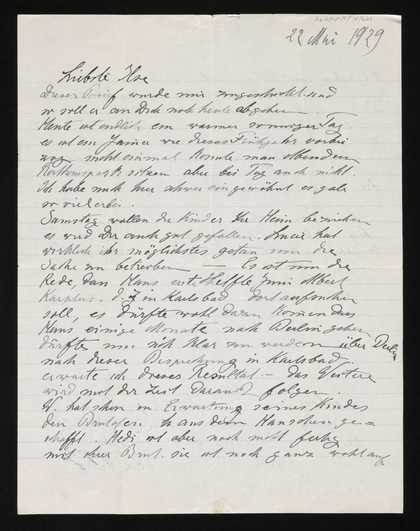 22 Mai 1929
Liebste Ilse
Dieser Brief wurde mir zugeschickt und
er soll er an Dich noch heute abgehen
Heute ist endlich ein warmer sonniger Tag
es ist ein Jammer wie dieses Frühjahr vorbei
nicht einmal konnte man Abend im
sitzen aber bei Tag auch nicht.
Ich habe mich hier schwer eingewöhnt es gab
so vielerlei.
Samstag wollen die Kinder Ihr Heim beziehen
es wird Dir auch gut gefallen. Lucie hat
wirklich ihr möglichstes getan um die
Sache zu betreiben Es ist nun die
Rede, dass Hans
in Karlsbad dort aufsuchen
soll, es dürfte wohl dazu kommen dass
Hans einige Monate nach Berlin gehen
dürfte um sich klar zu werden über
nach dieser Besprechung in Karlsbad
erwarte ich dieses Resultat – das Weitere
wird mit der Zeit darauf folgen.
hat schon in Erwartung seines Kindes
den aus dem Häuschen ge=
schafft. Hedi ist aber noch nicht fertig
mit ihrer Brut. sie ist noch ganz wohlauf